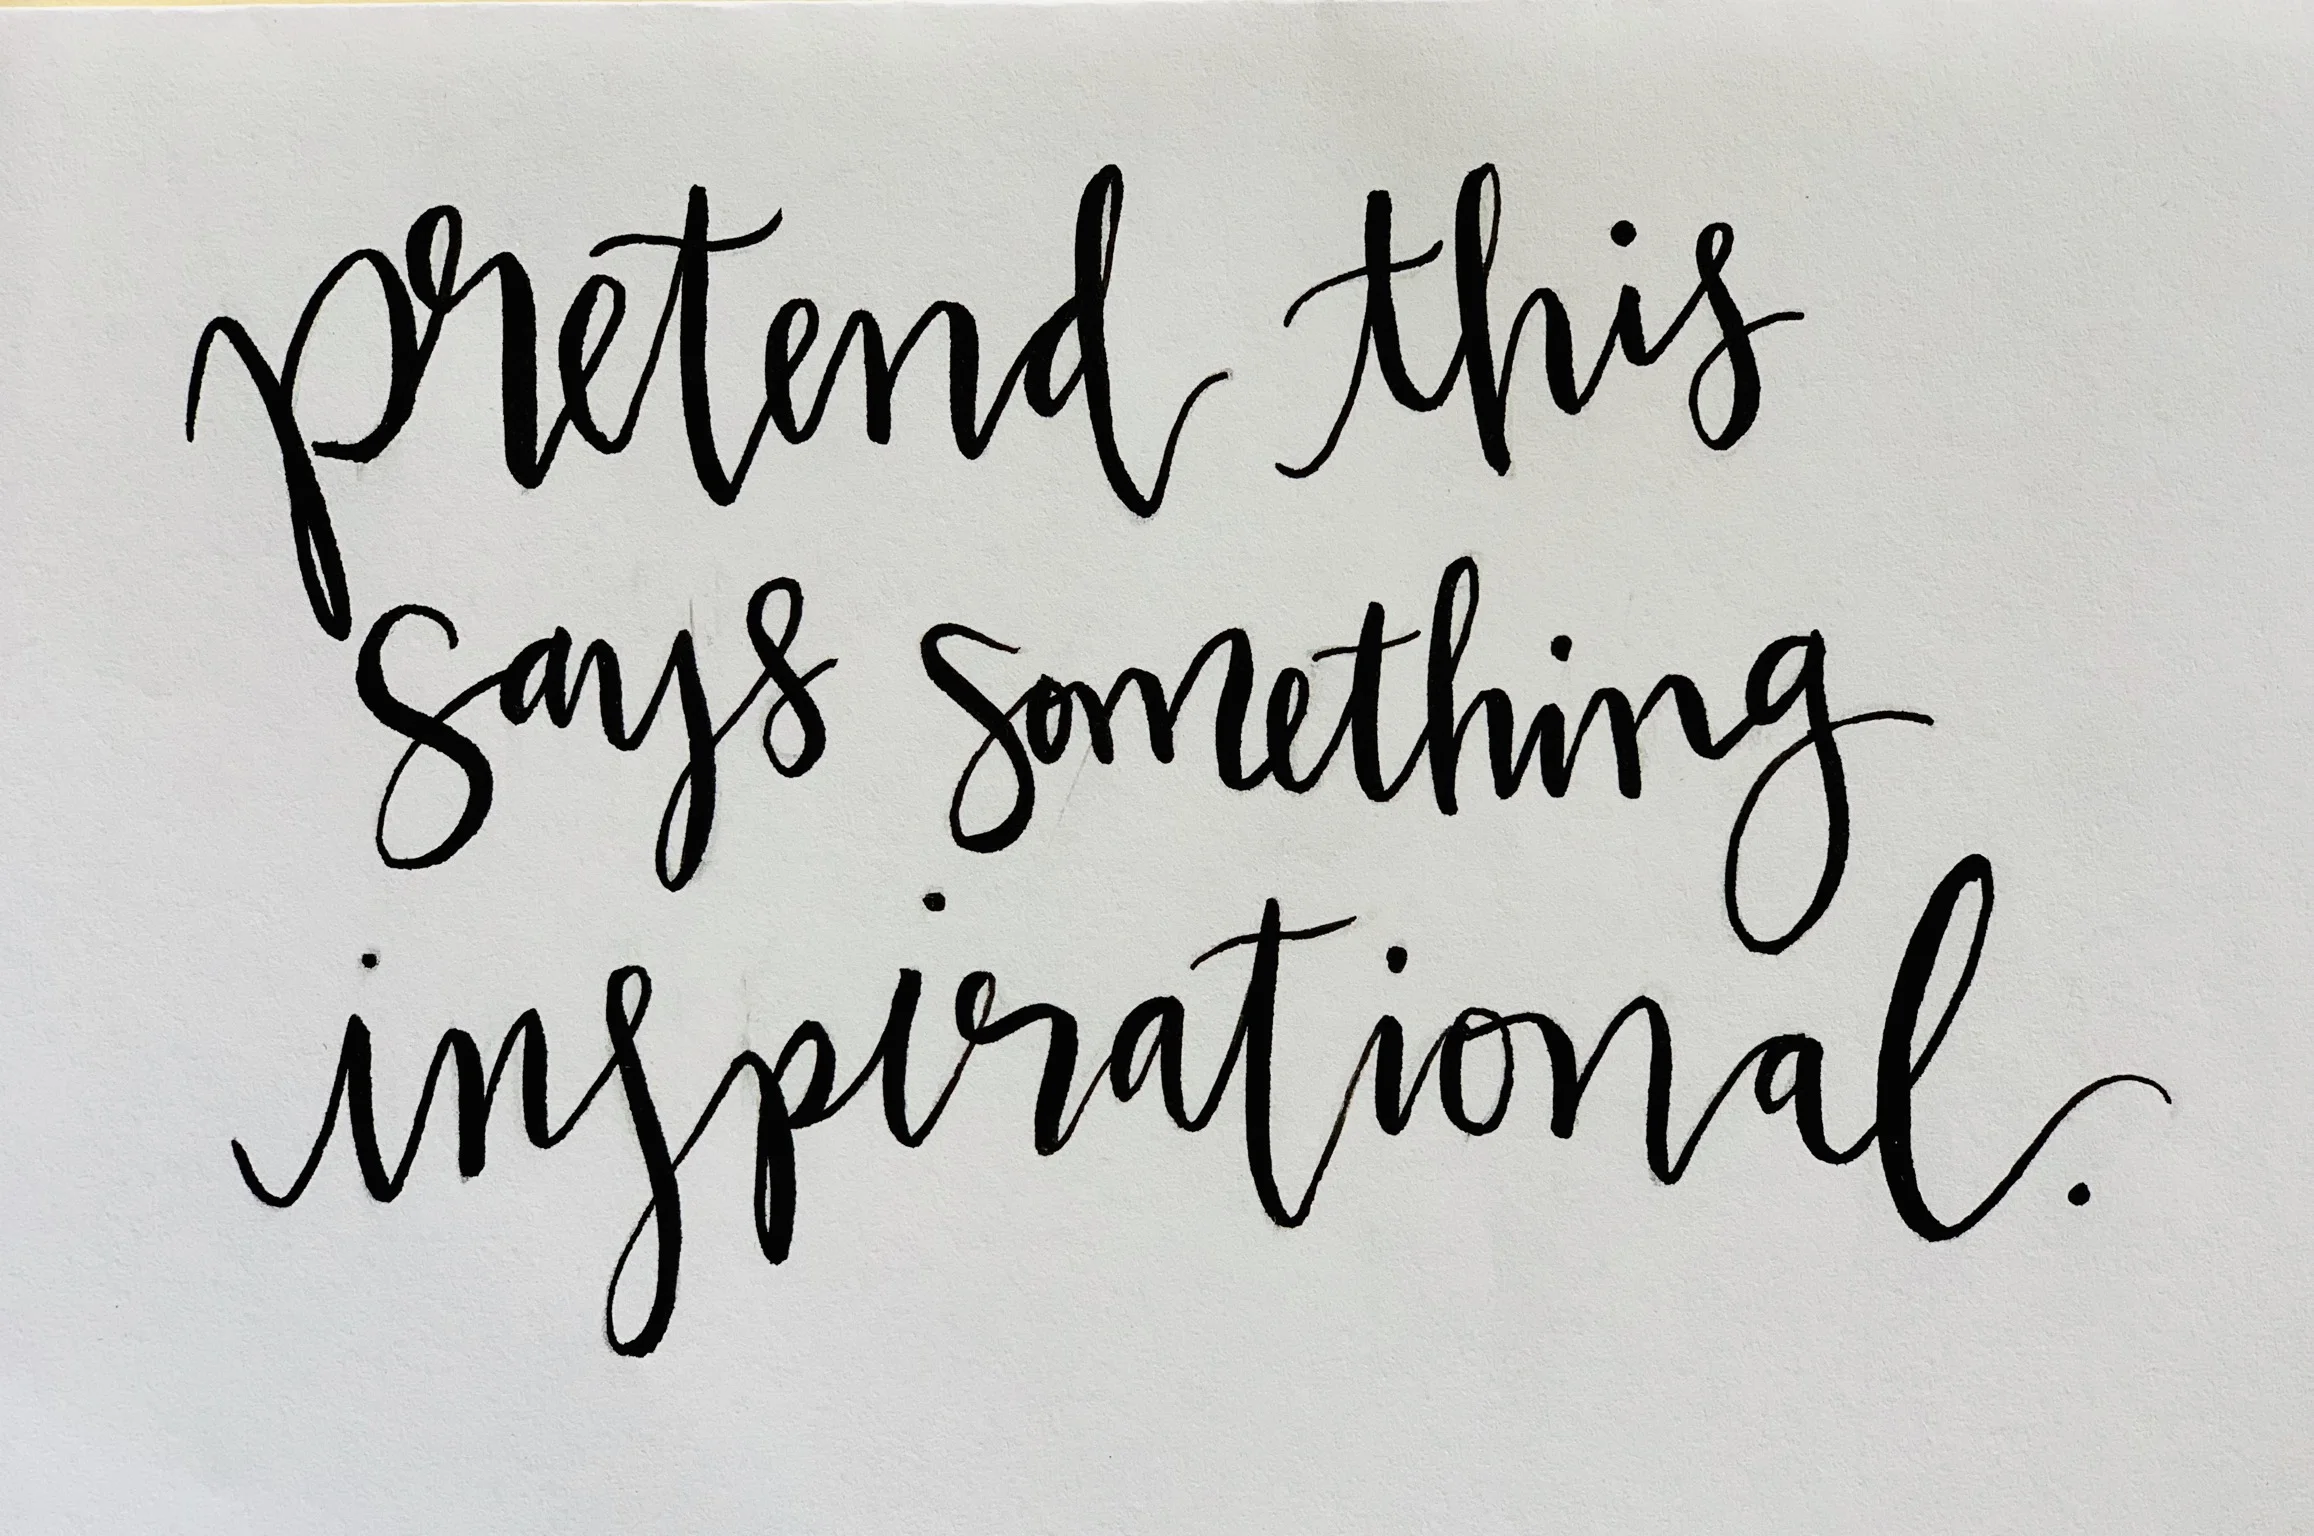 pretend this
says something
inspirational.